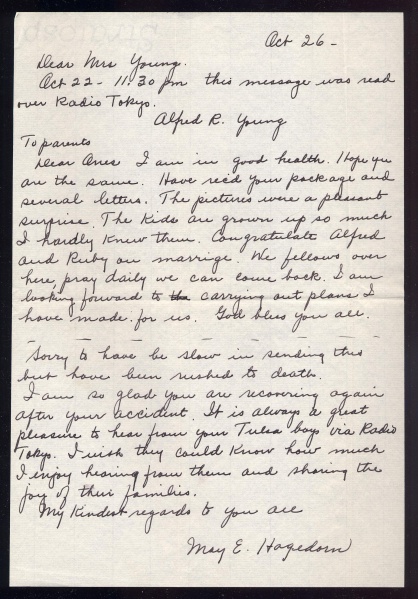 Oct 26-
Dear Mrs Young.
Oct 22- 11:30 pm this message was read
over Radio Tokyo.
Alfred R. Young
To parents
Dear Ones I am in good health. Hope you
are the same. Have rec'd your package and
several letters. The pictures were a pleasant
surprise. The Kids are grown up so much
I hardly knew them. Congratulate Alfred
and Ruby on marrige. We fellows over
here pray daily we can come back. I am
looking forward to carrying out plans I
have made for us. God bless you all.
Sorry to have be slow in sending this
but have been rushed to death.
I am so glad you are recovering again
after your accident. It is always a great
pleasure to hear from your Tulsa boys via Radio
Tokyo. I wish they could know how much
I enjoy hearing from them and sharing the
joy of their families.
My Kindest regards to you all
May E. Hagedorn